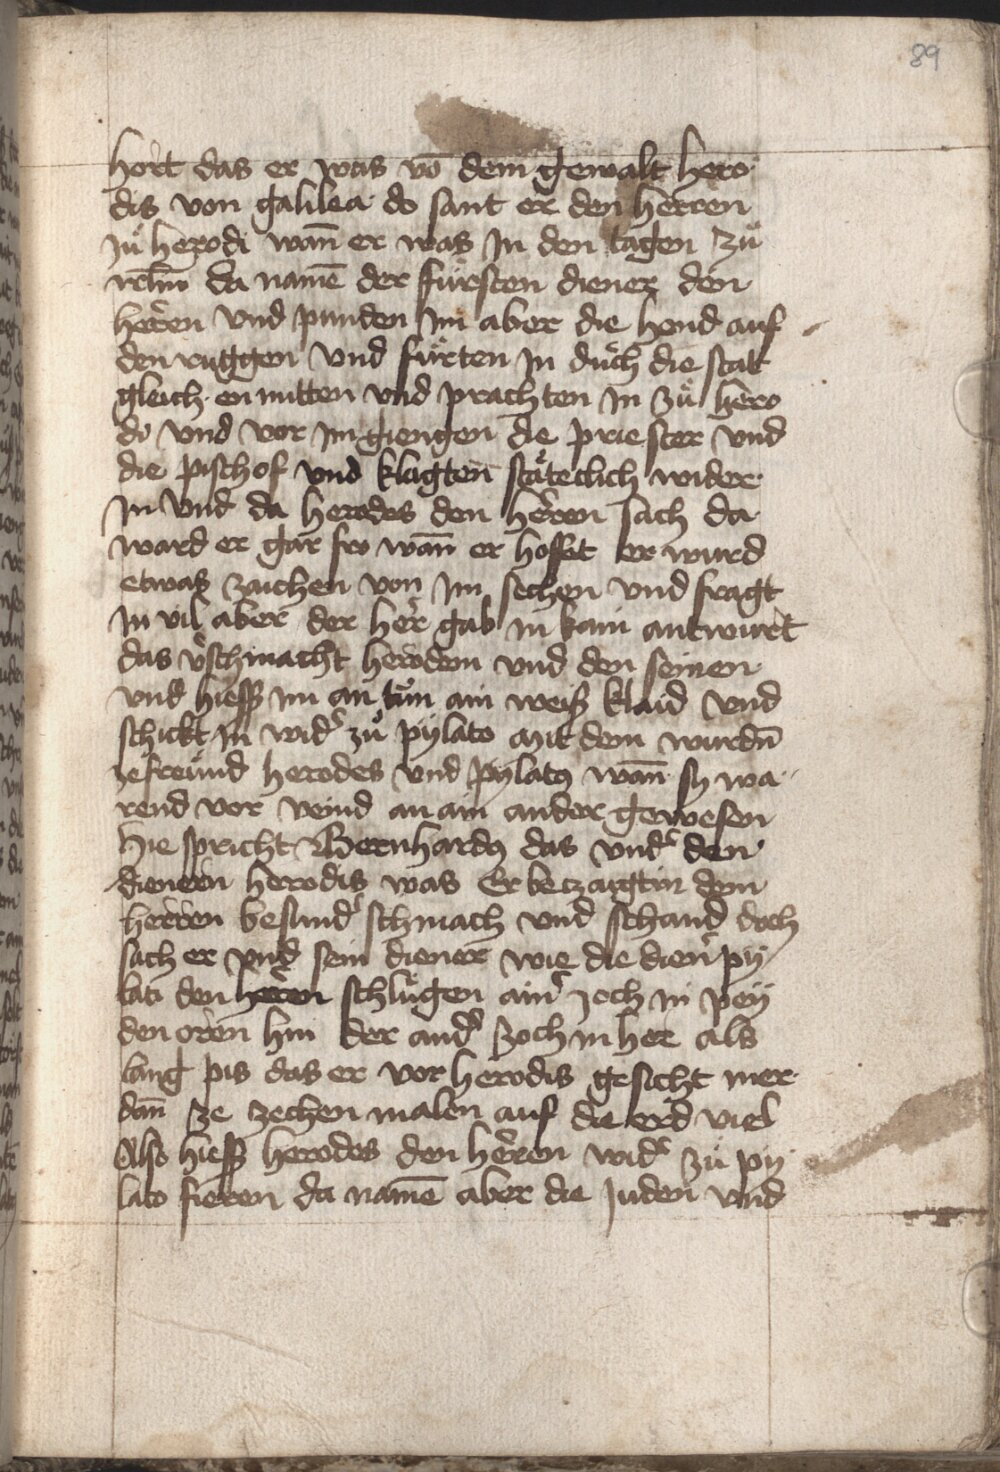 89
hort das er was vō dem gewalt hero
dis von galilea do sant er den herren
zuͦ herodi wañ er was In den tagen zuͦ
irlm̄ da namē der fursten diener den
herren vnd punden im aber die hend auf
den ruggen vnd fuͤrten in duͦch die stat
gleich en mitten vnd prachten in zuͦ hero
do vnd vor im giengen die priester vnd
die pischof vnd klagten staͤteclich wider
In vnd da herodes den herren sach da
ward er gar fro wañ er hoffet er wurd
etwas zaichen von im sechen vnd fragt
In vil aber der her gab in kain antwurt
das v̓schmacht herodem vnd den seinen
vnd hiess im an tuͦn ain weiss klaid vnd
schickt In wid̓ zuͦ pylato mit dem wurdn̄
ze freund herodes vnd pylatꝯ wañ sy wa
rend vor veind an ain ander gewesen
hie spricht Bernhardꝯ das vnd̓ den
dienern herodis was Er beczaigtin dem
herren besund̓ schmach vnd schand doch
sach er vnd sein diener wie die dien̓ py
lati den herren schluͤgen ain̓ zoch in pey
den oren hin der and̓ zoch in her als
lang pis das er vor herodis gesicht mer
dañ ze zechen malen auf die erd viel
Also hiess herodes den herren wid̓ zuͦ py
lato fieren da namē aber die Juden vnd